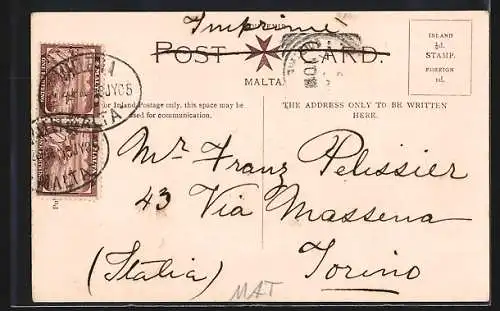 Imprimé
SOUVENIR
POST CARD.
MALTA
INLAND
½d.
STAMP.
FOREIGN
1d.
VALLETTA
JY 05
MALTA
For Inland Postage only, this space may be
used for communication.
THE ADDRESS ONLY TO BE WRITTEN
HERE.
VALLETTA
MALTA
Mr. Franz Pelissier
43 Via Massena
(Italia) Torino
MAT